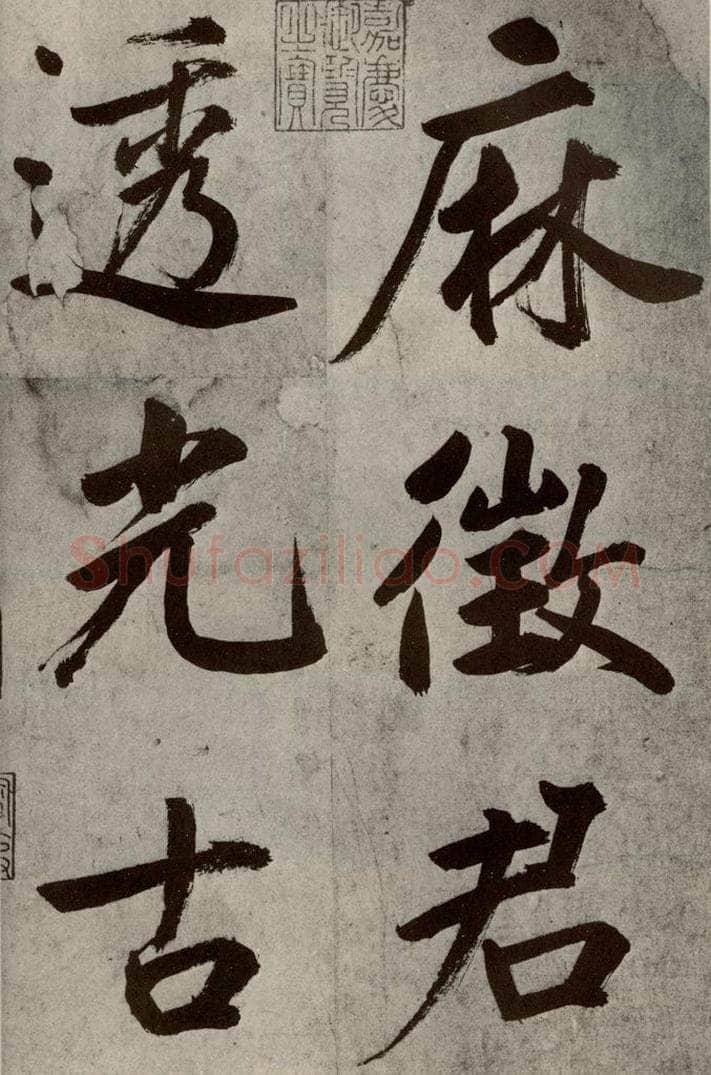 麻徵君
透光古
嘉慶御覽之寶
Shufaziliao.COM